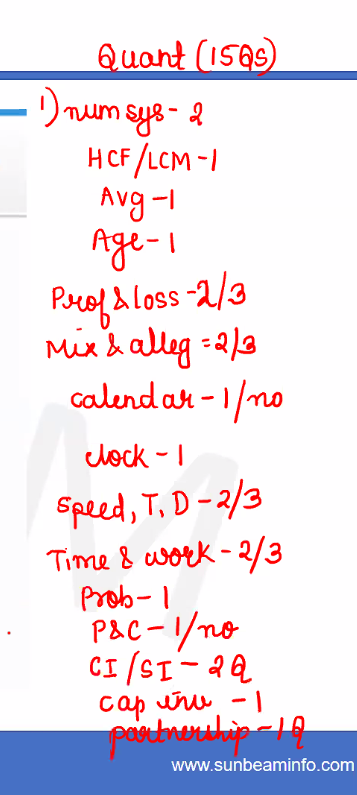 Quant (15Qs)
1) num sys - 2
HCF/LCM - 1
Avg - 1
Age - 1
Prof & loss - 2/3
Mix & alleg = 2/3
calendar - 1/no
clock - 1
Speed, T, D - 2/3
Time & work - 2/3
Prob - 1
P&C - 1/no
CI/SI - 2Q
cap inv - 1
partnership - 1Q
www.sunbeaminfo.com